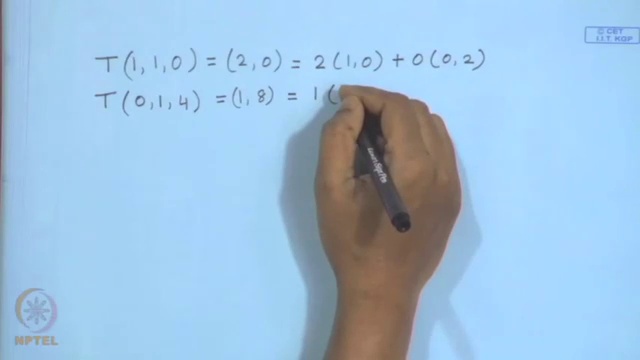 © CET
I.I.T. KGP
T(1,1,0) = (2,0) = 2(1,0) + 0(0,2)
T(0,1,4) = (1,8) = 1(
NPTEL